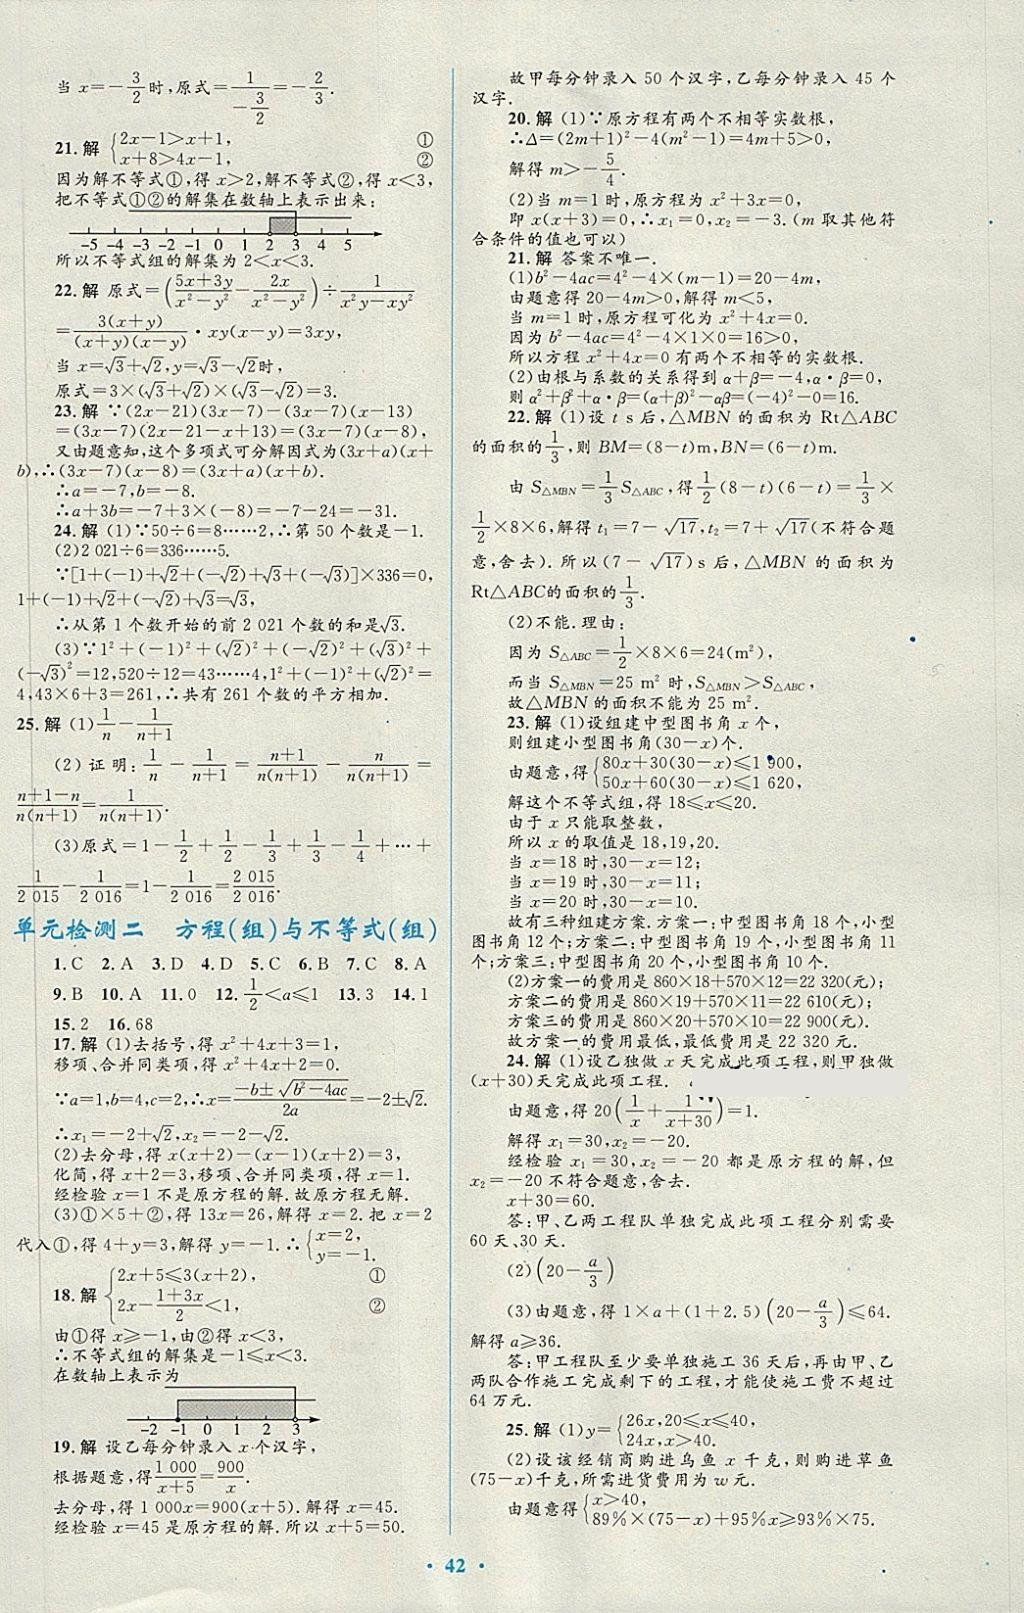 当 x=-3/2时,原式=1/(-3/2)=-2/3.
21.解 {2x-1>x+1, ①
x+8>4x-1, ②
因为解不等式①,得 x>2,解不等式②,得 x<3,
把不等式①②的解集在数轴上表示出来:
-5 -4 -3 -2 -1 0 1 2 3 4 5
所以不等式组的解集为 2<x<3.
22.解 原式=((5x+3y)/(x²-y²)-2x/(x²-y²))÷1/(x²y-xy²)
=3(x+y)/((x+y)(x-y))·xy(x-y)=3xy,
当 x=√3+√2,y=√3-√2时,
原式=3×(√3+√2)×(√3-√2)=3.
23.解 ∵(2x-21)(3x-7)-(3x-7)(x-13)
=(3x-7)(2x-21-x+13)=(3x-7)(x-8),
又由题意知,这个多项式可分解因式为(3x+a)(x+
b),∴(3x-7)(x-8)=(3x+a)(x+b).
∴a=-7,b=-8.
∴a+3b=-7+3×(-8)=-7-24=-31.
24.解 (1)∵50÷6=8……2,∴第 50 个数是-1.
(2)2 021÷6=336……5.
∵[1+(-1)+√2+(-√2)+√3+(-√3)]×336=0,
1+(-1)+√2+(-√2)+√3=√3,
∴从第 1 个数开始的前 2 021 个数的和是√3.
(3)∵1²+(-1)²+(√2)²+(-√2)²+(√3)²+
(-√3)²=12,520÷12=43……4,1²+(-1)²+(√2)²=
4,43×6+3=261,∴共有 261 个数的平方相加.
25.解 (1)1/n-1/(n+1)
(2)证明:1/n-1/(n+1)=(n+1)/(n(n+1))-n/(n(n+1))=
(n+1-n)/(n(n+1))=1/(n(n+1)).
(3)原式=1-1/2+1/2-1/3+1/3-1/4+…+
1/2 015-1/2 016=1-1/2 016=2 015/2 016.
单元检测二 方程(组)与不等式(组)
1.C 2.A 3.D 4.D 5.C 6.B 7.C 8.A
9.B 10.A 11.0 12.1/2<a≤1 13.3 14.1
15.2 16.68
17.解 (1)去括号,得 x²+4x+3=1,
移项、合并同类项,得 x²+4x+2=0.
∵a=1,b=4,c=2,∴x=(-b±√(b²-4ac))/2a=-2±√2.
∴x₁=-2+√2,x₂=-2-√2.
(2)去分母,得 x(x+2)-(x-1)(x+2)=3,
化简,得 x+2=3,移项、合并同类项,得 x=1.
经检验 x=1 不是原方程的解.故原方程无解.
(3)①×5+②,得 13x=26,解得 x=2.把 x=2
代入①,得 4+y=3,解得 y=-1.∴{x=2,
y=-1.
18.解 {2x+5≤3(x+2), ①
2x-(1+3x)/2<1, ②
由①得 x≥-1,由②得 x<3,
∴不等式组的解集是-1≤x<3.
在数轴上表示为
-2 -1 0 1 2 3
19.解 设乙每分钟录入 x 个汉字,
根据题意,得1 000/(x+5)=900/x.
去分母,得 1 000x=900(x+5).解得 x=45.
经检验 x=45 是原方程的解.所以 x+5=50.
故甲每分钟录入 50 个汉字,乙每分钟录入 45 个
汉字.
20.解 (1)∵原方程有两个不相等实数根,
∴Δ=(2m+1)²-4(m²-1)=4m+5>0,
解得 m>-5/4.
(2)当 m=1 时,原方程为 x²+3x=0,
即 x(x+3)=0,∴x₁=0,x₂=-3.(m 取其他符
合条件的值也可以)
21.解 答案不唯一.
(1)b²-4ac=4²-4×(m-1)=20-4m,
由题意得 20-4m>0,解得 m<5,
当 m=1 时,原方程可化为 x²+4x=0.
因为 b²-4ac=4²-4×1×0=16>0,
所以方程 x²+4x=0 有两个不相等的实数根.
(2)由根与系数的关系得到 α+β=-4,α·β=0,
则 α²+β²+α·β=(α+β)²-αβ=(-4)²-0=16.
22.解 (1)设 t s 后,△MBN 的面积为 Rt△ABC
的面积的1/3,则 BM=(8-t)m,BN=(6-t)m.
由 S△MBN=1/3S△ABC,得1/2(8-t)(6-t)=1/3×
1/2×8×6,解得 t₁=7-√17,t₂=7+√17(不符合题
意,舍去).所以(7-√17)s 后,△MBN 的面积为
Rt△ABC的面积的1/3.
(2)不能.理由:
因为 S△ABC=1/2×8×6=24(m²),
而当 S△MBN=25 m² 时,S△MBN>S△ABC,
故△MBN 的面积不能为 25 m².
23.解 (1)设组建中型图书角 x 个,
则组建小型图书角(30-x)个.
由题意,得{80x+30(30-x)≤1 900,
50x+60(30-x)≤1 620,
解这个不等式组,得 18≤x≤20.
由于 x 只能取整数,
所以 x 的取值是 18,19,20.
当 x=18 时,30-x=12;
当 x=19 时,30-x=11;
当 x=20 时,30-x=10.
故有三种组建方案.方案一:中型图书角 18 个,小型
图书角 12 个;方案二:中型图书角 19 个,小型图书角 11
个;方案三:中型图书角 20 个,小型图书角 10 个.
(2)方案一的费用是 860×18+570×12=22 320(元),
方案二的费用是 860×19+570×11=22 610(元),
方案三的费用是 860×20+570×10=22 900(元).
故方案一的费用最低,最低费用是 22 320 元.
24.解 (1)设乙独做 x 天完成此项工程,则甲独做
(x+30)天完成此项工程.
由题意,得 20(1/x+1/(x+30))=1.
解得 x₁=30,x₂=-20.
经检验 x₁=30,x₂=-20 都是原方程的解,但
x₂=-20 不符合题意,舍去.
x+30=60.
答:甲、乙两工程队单独完成此项工程分别需要
60 天、30 天.
(2)(20-a/3)
(3)由题意,得 1×a+(1+2.5)(20-a/3)≤64.
解得 a≥36.
答:甲工程队至少要单独施工 36 天后,再由甲、乙
两队合作施工完成剩下的工程,才能使施工费不超过
64 万元.
25.解 (1)y={26x,20≤x≤40,
24x,x>40.
(2)设该经销商购进乌鱼 x 千克,则购进草鱼
(75-x)千克,所需进货费用为 w 元.
由题意得{x>40,
89%×(75-x)+95%x≥93%×75.
· 42 ·